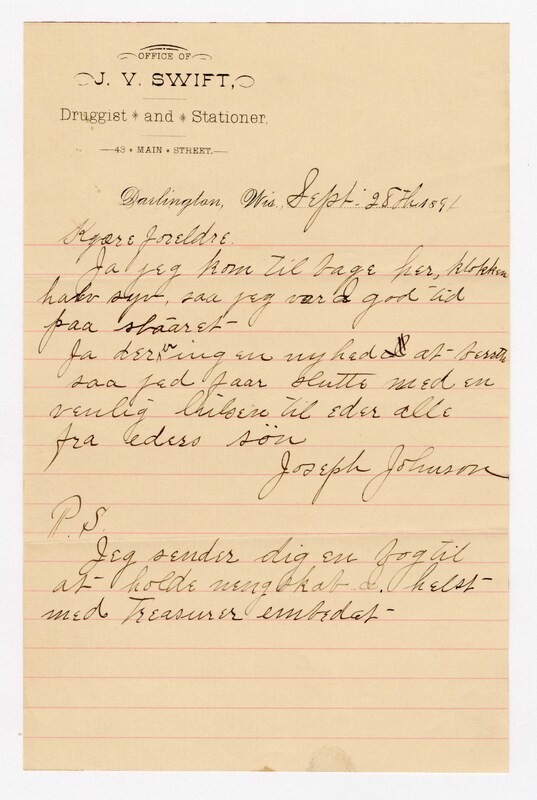 OFFICE OF
J. V. SWIFT,
Druggist and Stationer.
43 MAIN STREET.
Darlington, Wis. Sept. 28th 1891
Kjære foreldre.
Ja jeg kom til bage her, klokken
halv syv, saa jeg var i god tid
paa
Ja der er ingen nyhed at
saa jed faar slutte med en
venlig hilsen til eder alle
fra eders søn
Joseph Johnson
P.S.
Jeg sender dig en bog til
at holde helst
med Treasurer embedat